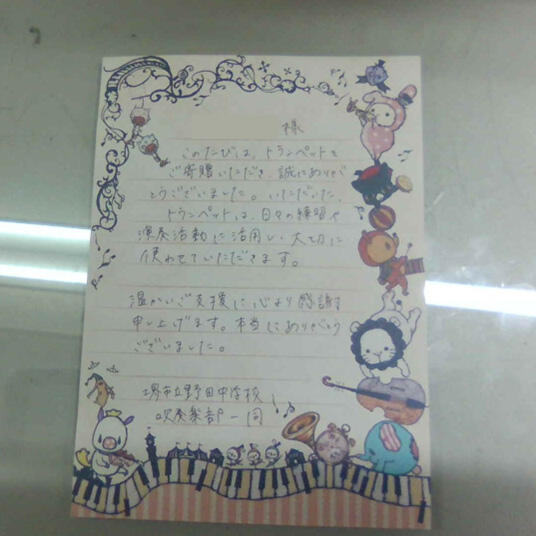 様
このたびは、トランペットを
ご寄贈いただき、誠にありが
とうございました。いただいた
トランペットは、日々の練習や
演奏活動に活用し、大切に
使わせていただきます。
温かいご支援に心より感謝
申し上げます。本当にありがとう
ございました。
堺市立野田中学校
吹奏楽部一同